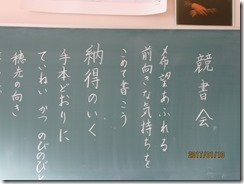 競書会
希望あふれる
前向きな気持ちを
こめて書こう
納得のいく
手本どおりに
ていねいかつのびのびと
穂先の向き
2017/01/10